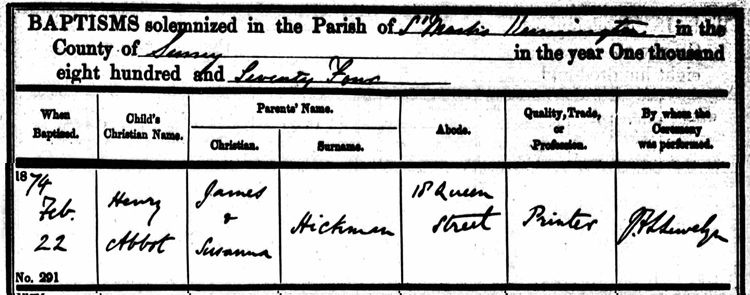 BAPTISMS solemnized in the Parish of St Mark's Kennington in the
County of Surrey in the year One thousand
eight hundred and Seventy Four
When Baptised.
Child's Christian Name.
Parents' Name.
Christian.
Surname.
Abode.
Quality, Trade, or Profession.
By whom the Ceremony was performed.
1874
Feb.
22
No. 291
Henry
Abbot
James
&
Susanna
Hickman
18 Queen
Street
Printer